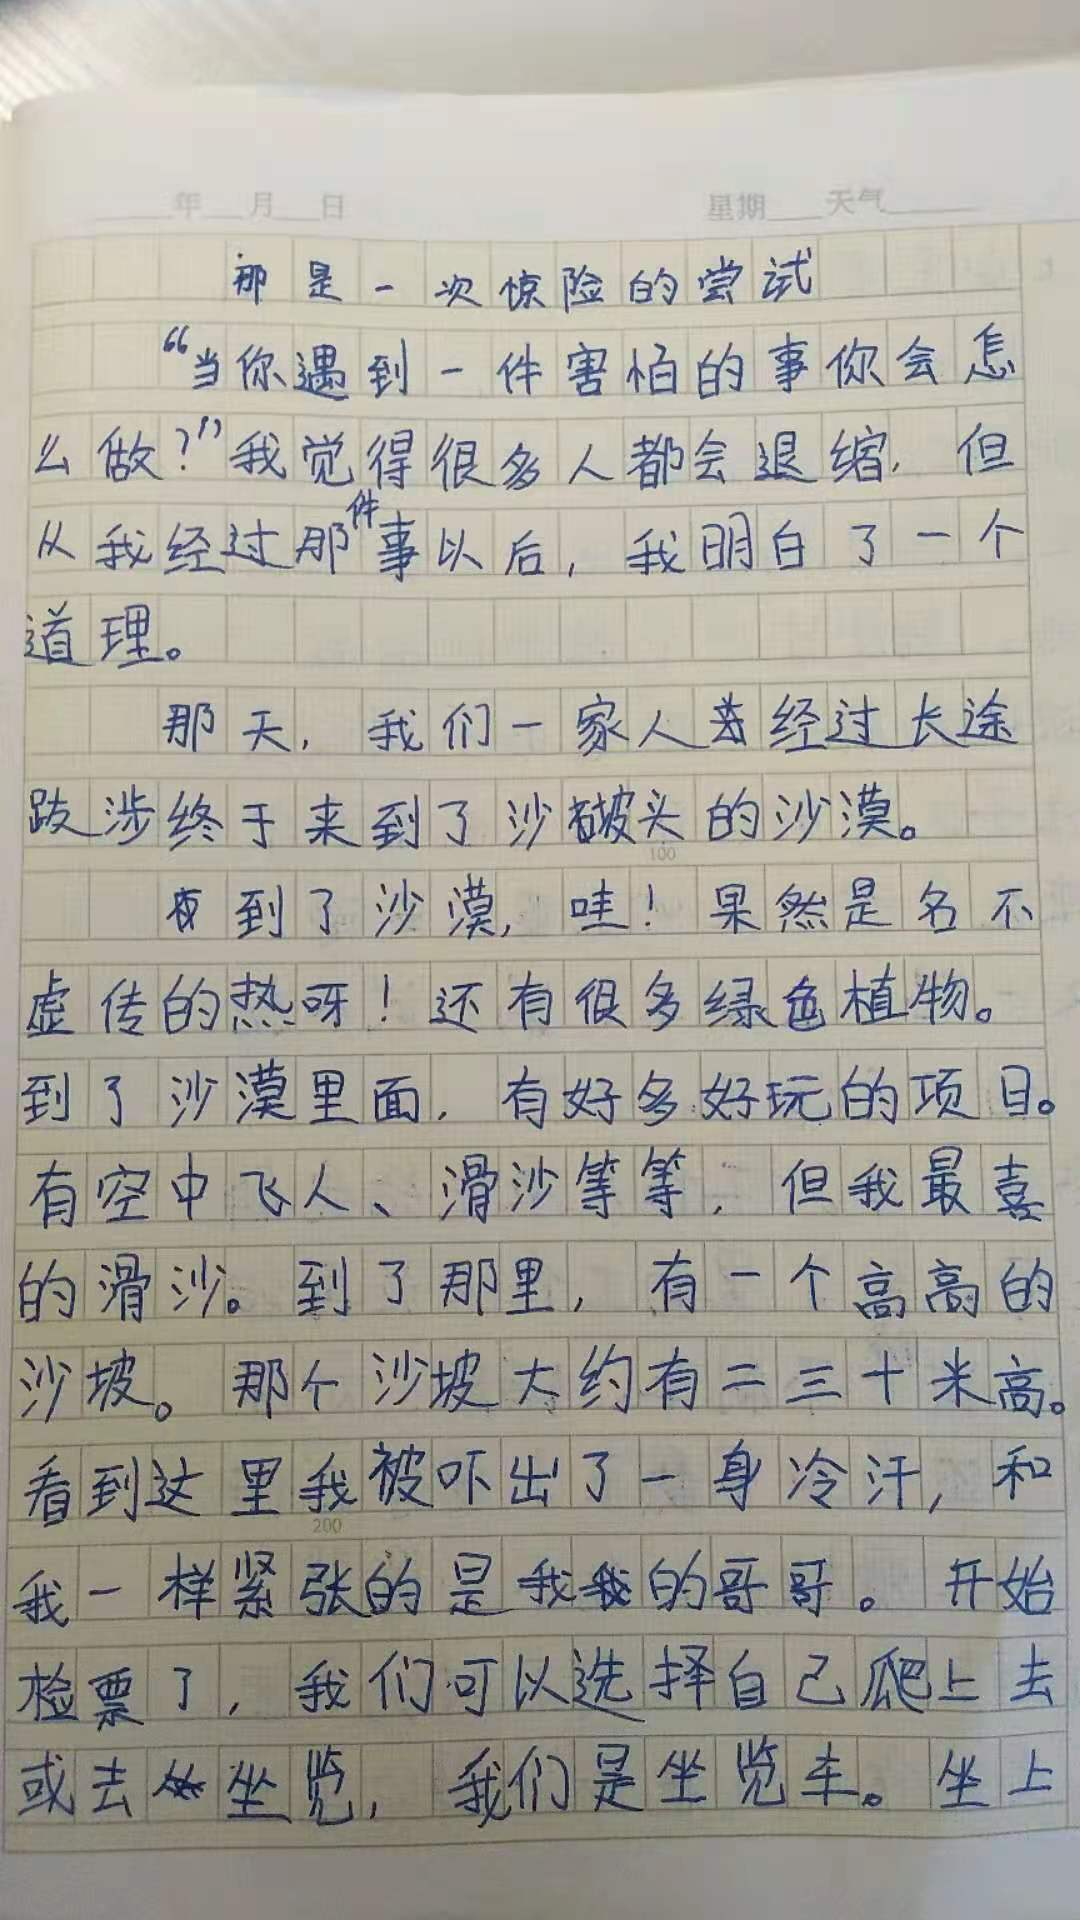 年 月 日 星期 天气
那是一次惊险的尝试
“当你遇到一件害怕的事你会怎
么做?”我觉得很多人都会退缩,但
从我经过那件事以后,我明白了一个
道理。
那天,我们一家人经过长途
跋涉终于来到了沙坡头的沙漠。
到了沙漠,哇!果然是名不
虚传的热呀!还有很多绿色植物。
到了沙漠里面,有好多好玩的项目。
有空中飞人、滑沙等等,但我最喜
的滑沙。到了那里,有一个高高的
沙坡。那个沙坡大约有二三十米高。
看到这里我被吓出了一身冷汗,和
200
我一样紧张的是我的哥哥。开始
检票了,我们可以选择自己爬上去
或去坐览,我们是坐览车。坐上